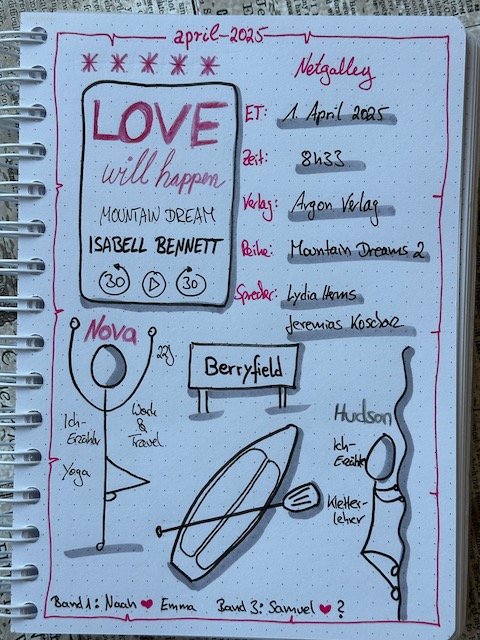 april-2025
Netgalley
LOVE
will happen
MOUNTAIN DREAM
ISABELL BENNETT
30 30
ET: 1. April 2025
Zeit: 8h33
Verlag: Argon Verlag
Reihe: Mountain Dreams 2
Sprecher: Lydia Herms
Jeremias Koschorz
Nova
22J.
Ich-
Erzähler
Work
&
Travel
Yoga
Berryfield
Hudson
Ich-
Erzähler
Kletter-
lehrer
Band 1: Noah ❤ Emma Band 3: Samuel ❤ ?